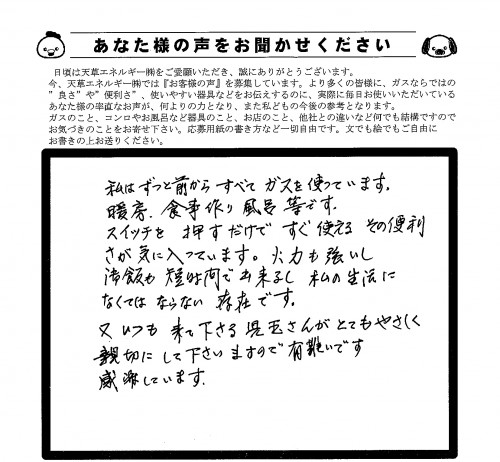 あなた様の声をお聞かせください
日頃は天草エネルギー㈱をご愛願いただき、誠にありがとうございます。
今、天草エネルギー㈱では『お客様の声』を募集しています。より多くの皆様に、ガスならではの
”良さ”や”便利さ”、使いやすい器具などをお伝えするのに、実際に毎日お使いいただいている
あなた様の率直なお声が、何よりの力となり、また私どもの今後の参考となります。
ガスのこと、コンロやお風呂など器具のこと、お店のこと、他社との違いなど何でも結構ですので
お気づきのことをお寄せ下さい。応募用紙の書き方など一切自由です。文でも絵でもご自由に
お書きの上お送りください。
私はずっと前からすべてガスを使っています。
暖房、食事作り風呂等です。
スイッチを押すだけですぐ使えるその便利
さが気に入っています。火力も強いし
御飯も短時間で出来るし私の生活に
なくてはならない存在です。
又いつも来て下さる児玉さんがとてもやさしく
親切にして下さいますので有難いです
感謝しています。